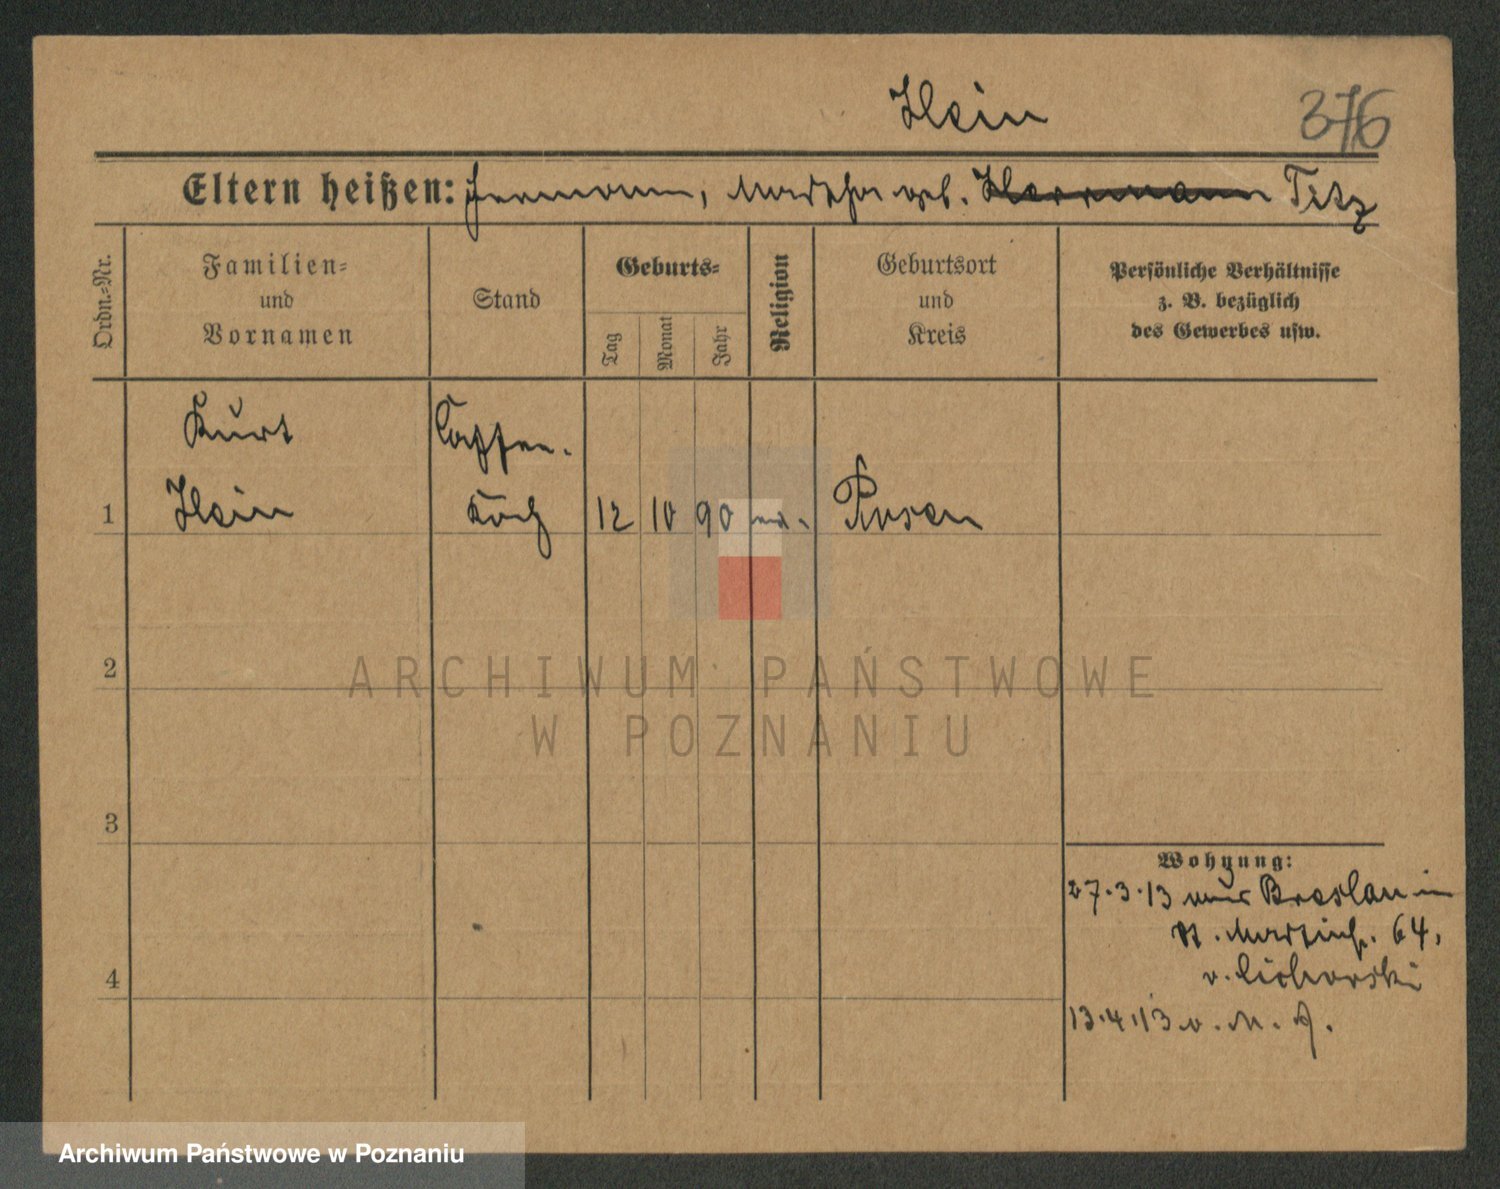 Klein
376
Eltern heißen: Hermann, Martha geb. Herrmann Titz
Ordn.-Nr.
Familien-
und
Vornamen
Stand
Geburts-
Tag
Monat
Jahr
Religion
Geburtsort
und
Kreis
Persönliche Verhältnisse
z. B. bezüglich
des Gewerbes usw.
Kurt
Klein
1
koch
12
10
90
Posen
2
3
4
Wohnung:
27.3.13 aus Breslau in
St. Martinstr. 64,
v. Cichorski
13.4.13
ARCHIWUM PAŃSTWOWE
W POZNANIU
Archiwum Państwowe w Poznaniu